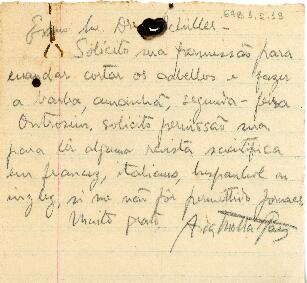 EAB 1.2.19
Exmo Sr. Dr. Achilles -
Solicito sua permissão para
mandar cortar os cabellos e fazer
a barba, amanhã, segunda-feira
Outrosim, solicito permissão sua
para lêr alguma revista scientifica
em francez, italiano, hespanhol ou
inglez, si me não fôr permittido jornaes.
Muito grato,